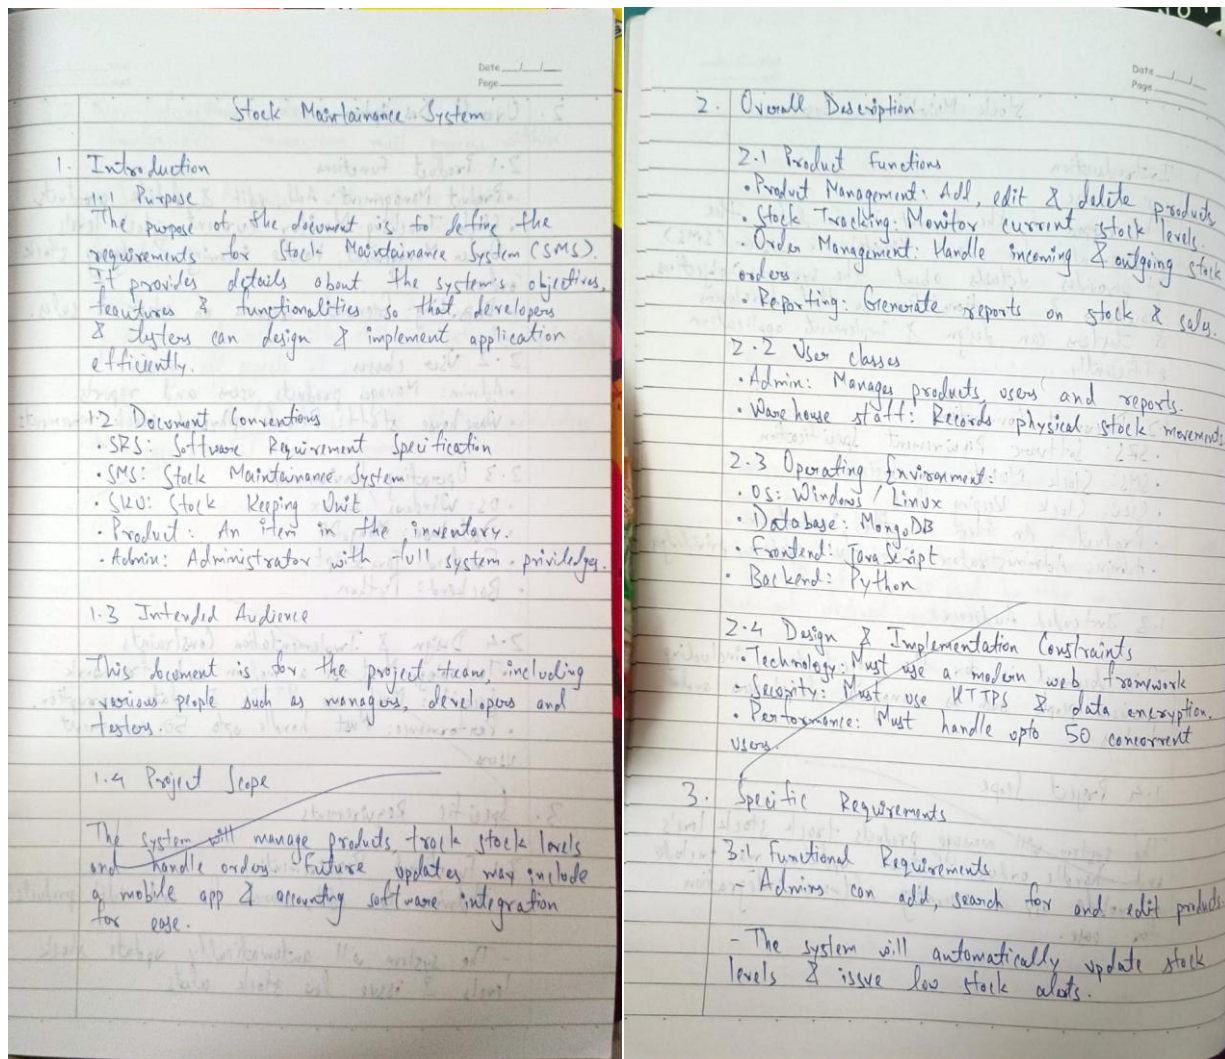 Date __/__/__
Page ______
Stock Maintainance System
1. Introduction
1.1 Purpose
The purpose of the document is to define the
requirements for Stock Maintainance System (SMS).
It provides details about the system's objectives,
feautures & functionalities so that developers
& testers can design & implement application
efficiently.
1.2 Document Conventions
• SRS: Software Requirement Specification
• SMS: Stock Maintainance System
• SKU: Stock Keeping Unit
• Product: An item in the inventory.
• Admin: Administrator with full system priviledges.
1.3 Intended Audience
This document is for the project team, including
various people such as managers, developers and
testers.
1.4 Project Scope
The system will manage products, track stock levels
and handle orders. Future updates may include
a mobile app & accounting software integration
for ease.
Date __/__/__
Page ______
2. Overall Description
2.1 Product Functions
• Product Management: Add, edit & delete products.
• Stock Tracking: Monitor current stock levels.
• Order Management: Handle incoming & outgoing stock
orders.
• Reporting: Generate reports on stock & sales.
2.2 User classes
• Admin: Manages products, users and reports.
• Warehouse staff: Records physical stock movements
2.3 Operating Environment:
• OS: Windows / Linux
• Database: MongoDB
• Frontend: JavaScript
• Backend: Python
2.4 Design & Implementation Constraints
• Technology: Must use a modern web framework
• Security: Must use HTTPS & data encryption.
• Performance: Must handle upto 50 concurrent
users.
3. Specific Requirements
3.1 Functional Requirements
- Admins can add, search for and edit products.
- The system will automatically update stock
levels & issue low stock alerts.